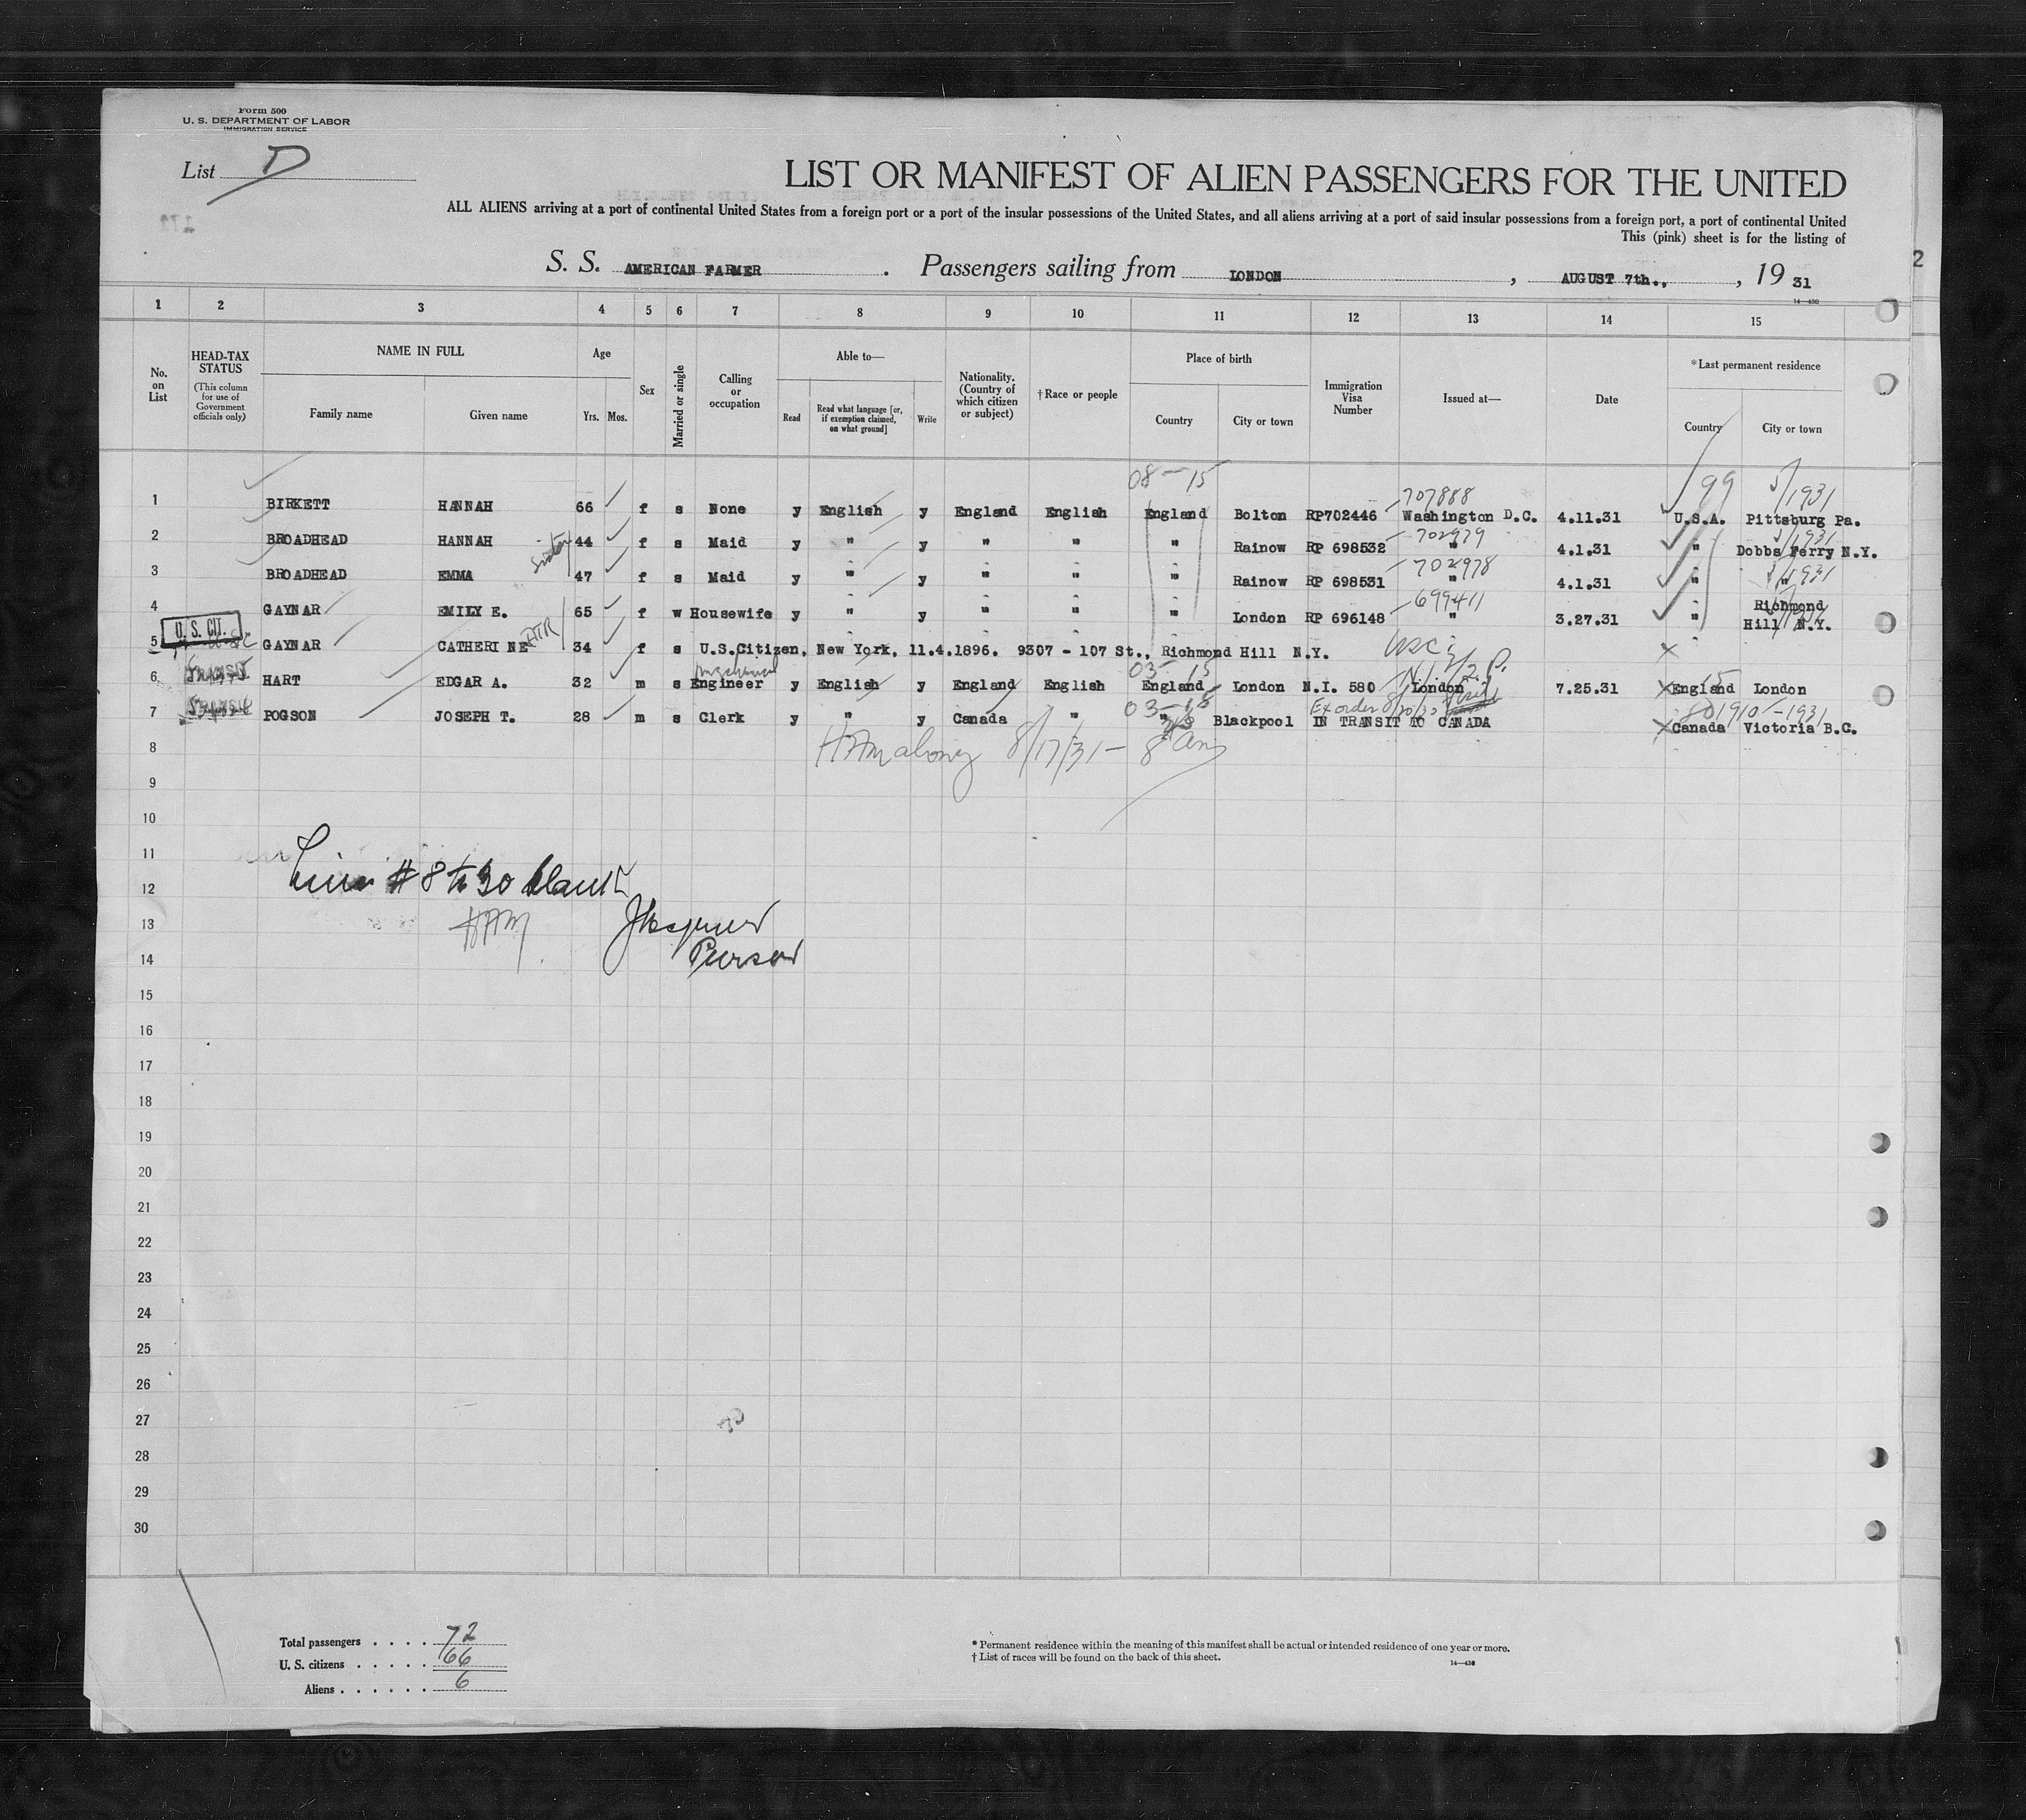 Form 500
U. S. DEPARTMENT OF LABOR
IMMIGRATION SERVICE
List D
LIST OR MANIFEST OF ALIEN PASSENGERS FOR THE UNITED
ALL ALIENS arriving at a port of continental United States from a foreign port or a port of the insular possessions of the United States, and all aliens arriving at a port of said insular possessions from a foreign port, a port of continental United
This (pink) sheet is for the listing of
S. S. AMERICAN FARMER . Passengers sailing from LONDON , AUGUST 7th., , 19 31
14—430
2
1 2 3 4 5 6 7 8 9 10 11 12 13 14 15
No. on List
HEAD-TAX STATUS
(This column for use of Government officials only)
NAME IN FULL
Family name Given name
Age
Yrs. Mos.
Sex
Married or single
Calling or occupation
Able to—
Read
Read what language [or, if exemption claimed, on what ground]
Write
Nationality. (Country of which citizen or subject)
† Race or people
Place of birth
Country City or town
Immigration Visa Number
Issued at—
Date
* Last permanent residence
Country City or town
08—15 707888 99 1931
1 BIRKETT HANNAH 66 f s None y English y England English England Bolton RP702446 Washington D.C. 4.11.31 U.S.A. Pittsburg Pa.
702979 1931
2 BROADHEAD HANNAH sister 44 f s Maid y " y " " " Rainow RP 698532 " 4.1.31 " Dobbs Ferry N.Y.
702978 1931
3 BROADHEAD EMMA 47 f s Maid y " y " " " Rainow RP 698531 " 4.1.31 " "
699411
4 GAYNAR EMILY E. 65 f w Housewife y " y " " " London RP 696148 " 3.27.31 " Richmond Hill N.Y.
U. S. CIT.
5 GAYNAR CATHERINE 34 f s U.S.Citizen, New York, 11.4.1896. 9307 - 107 St., Richmond Hill N.Y. USC
03-15 15
6 HART EDGAR A. 32 m s Engineer y English y England English England London N.I. 580 London 7.25.31 England London
Ex order 1910-1931
7 POGSON JOSEPH T. 28 m s Clerk y " y Canada " " Blackpool IN TRANSIT TO CANADA Canada Victoria B.C.
8/17/31 -
8
9
10
11
Lines # 8 to 30 blank
12
HAM
13
Purser
14
15
16
17
18
19
20
21
22
23
24
25
26
27
28
29
30
Total passengers . . . . 72
U. S. citizens . . . . . 66
Aliens . . . . . . 6
* Permanent residence within the meaning of this manifest shall be actual or intended residence of one year or more.
† List of races will be found on the back of this sheet.
14—430